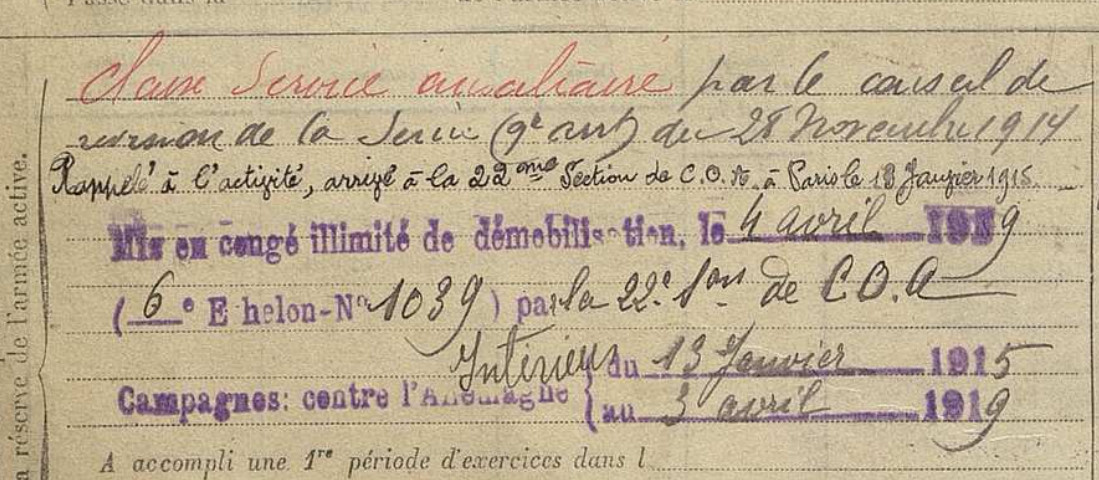 Passé dans la
Classé Service auxiliaire par le conseil de
révision de la Seine (9e arrt) du 28 Novembre 1914
Rappelé à l'activité, arrivé à la 22me Section de C.O.A. à Paris le 13 Janvier 1915
Mis en congé illimité de démobilisation, le 4 avril 1919
(6e Echelon-No 1039) par la 22e Son de C.O.A
Intérieur du 13 Janvier 1915
Campagnes: contre l'Allemagne au 3 avril 1919
A accompli une 1re période d'exercices dans l
a réserve de l'armée active.